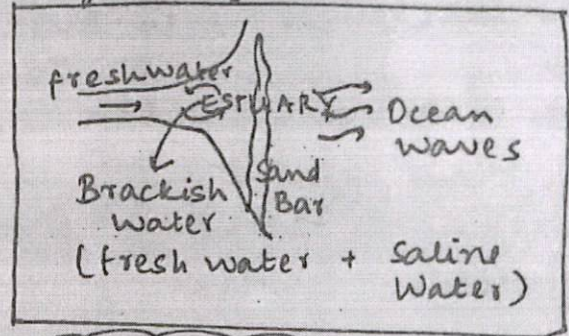 freshwater
ESTUARY
Ocean
waves
Brackish
water
Sand
Bar
(fresh water + Saline
Water)